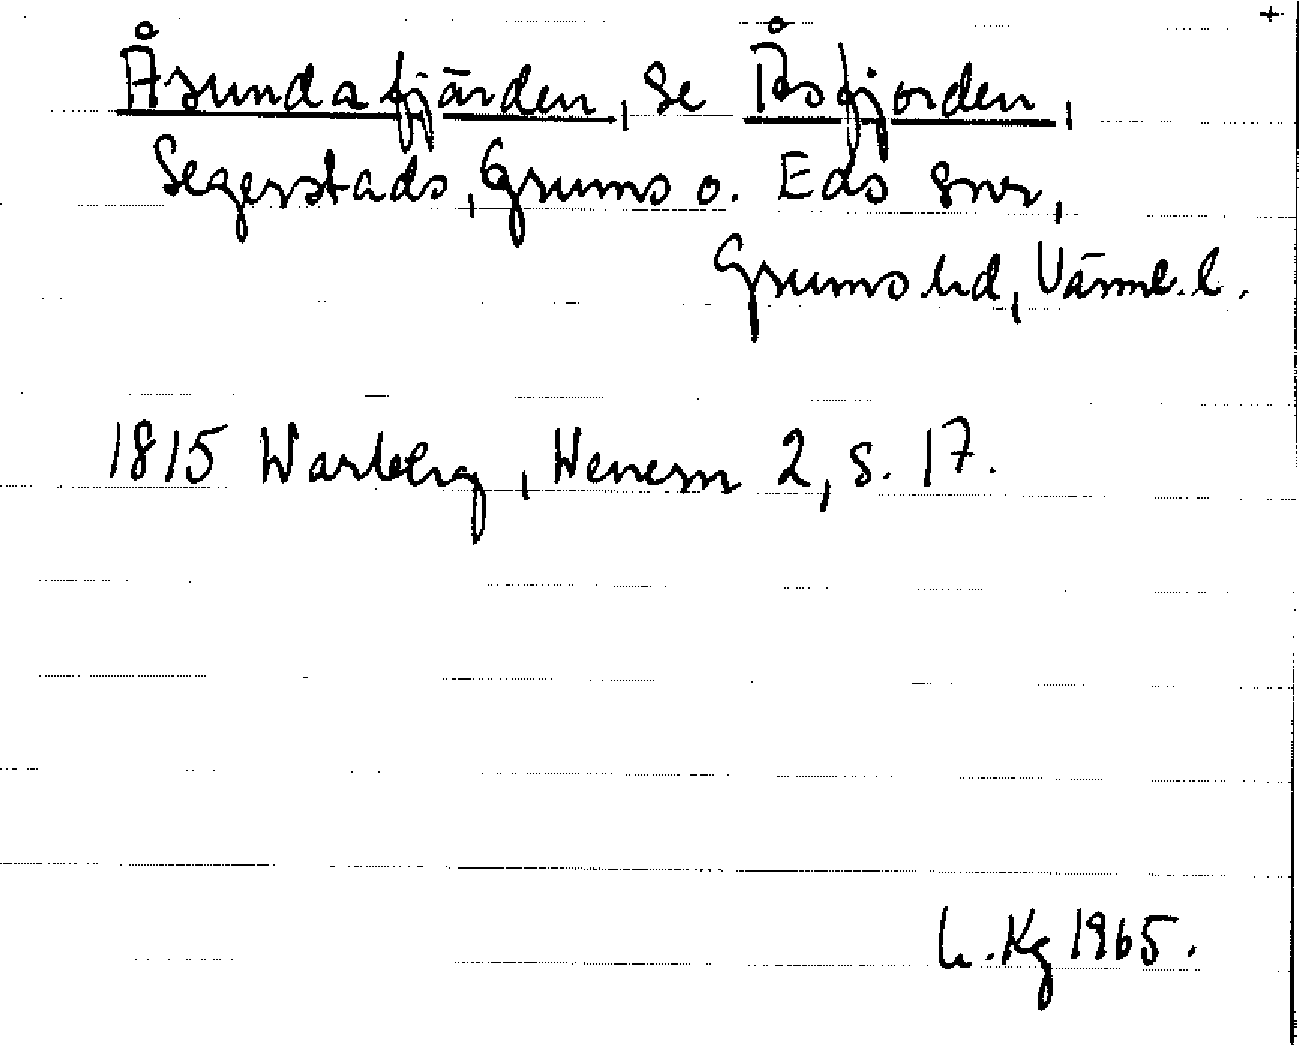 +
Åsundafjärden, se Åsfjorden,
Segerstads, Grums o. Eds snr,
Grums hd, Värml. l.
1815 Warberg, Wenern 2, s. 17.
L. Kg 1965.